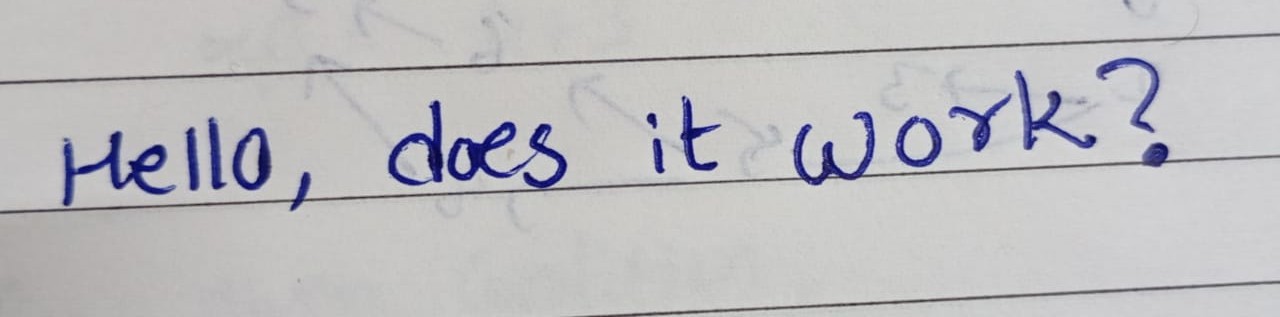 Hello, does it work?